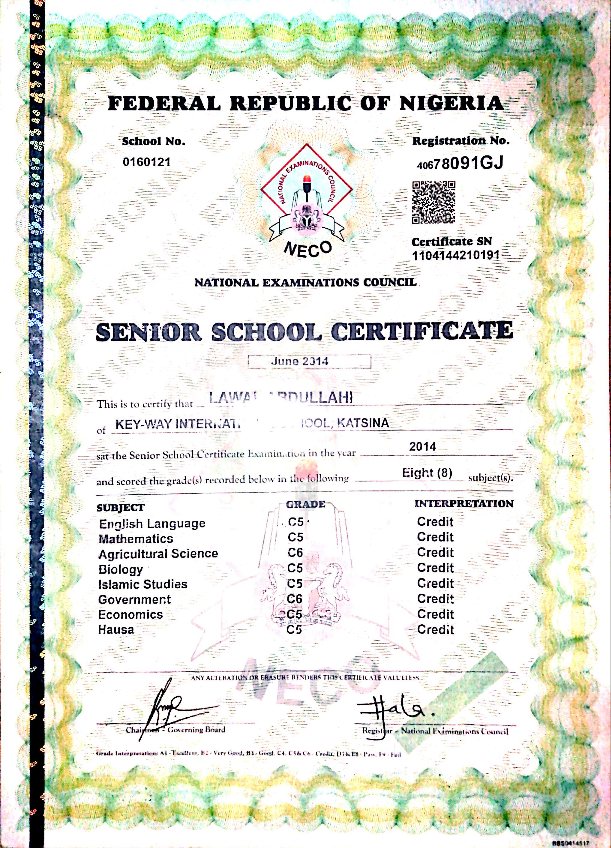 FEDERAL REPUBLIC OF NIGERIA
School No.
0160121
Registration No.
40678091GJ
NATIONAL EXAMINATIONS COUNCIL
NECO
Certificate SN
1104144210191
NATIONAL EXAMINATIONS COUNCIL
SENIOR SCHOOL CERTIFICATE
June 2014
This is to certify that LAWAL ABDULLAHI
of KEY-WAY KATSINA
sat the Senior School Certificate Examination in the year 2014
and scored the grade(s) recorded below in the following Eight (8) subject(s).
SUBJECT GRADE INTERPRETATION
English Language C5 Credit
Mathematics C5 Credit
Agricultural Science C6 Credit
Biology C5 Credit
Islamic Studies C5 Credit
Government C6 Credit
Economics C5 Credit
Hausa C5 Credit
NECO
ANY ALTERATION OR ERASURE RENDERS THIS CERTIFICATE VALUELESS
Chairman - Governing Board
Registrar - National Examinations Council
Grade Interpretation: A1 - Excellent, B2 - Very Good, B3 - Good, C4, C5 & C6 - Credit, D7 & E8 - Pass, F9 - Fail